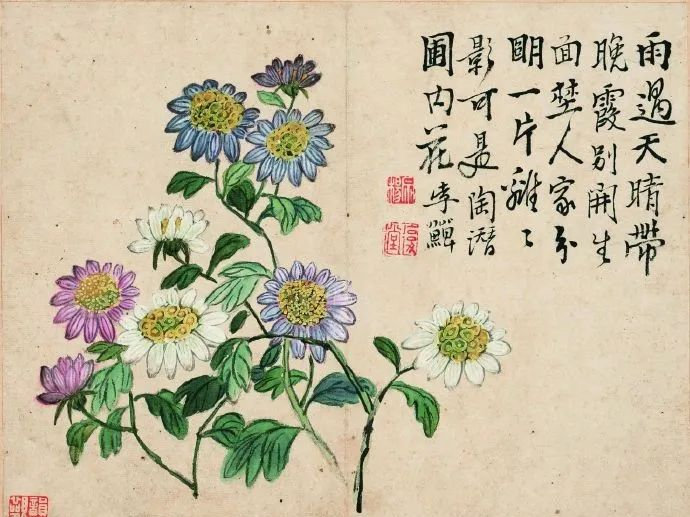 雨過天晴帶
晚霞別開生
面埜人家分
明一片離〻
影可是陶潛
圃内花 李鱓